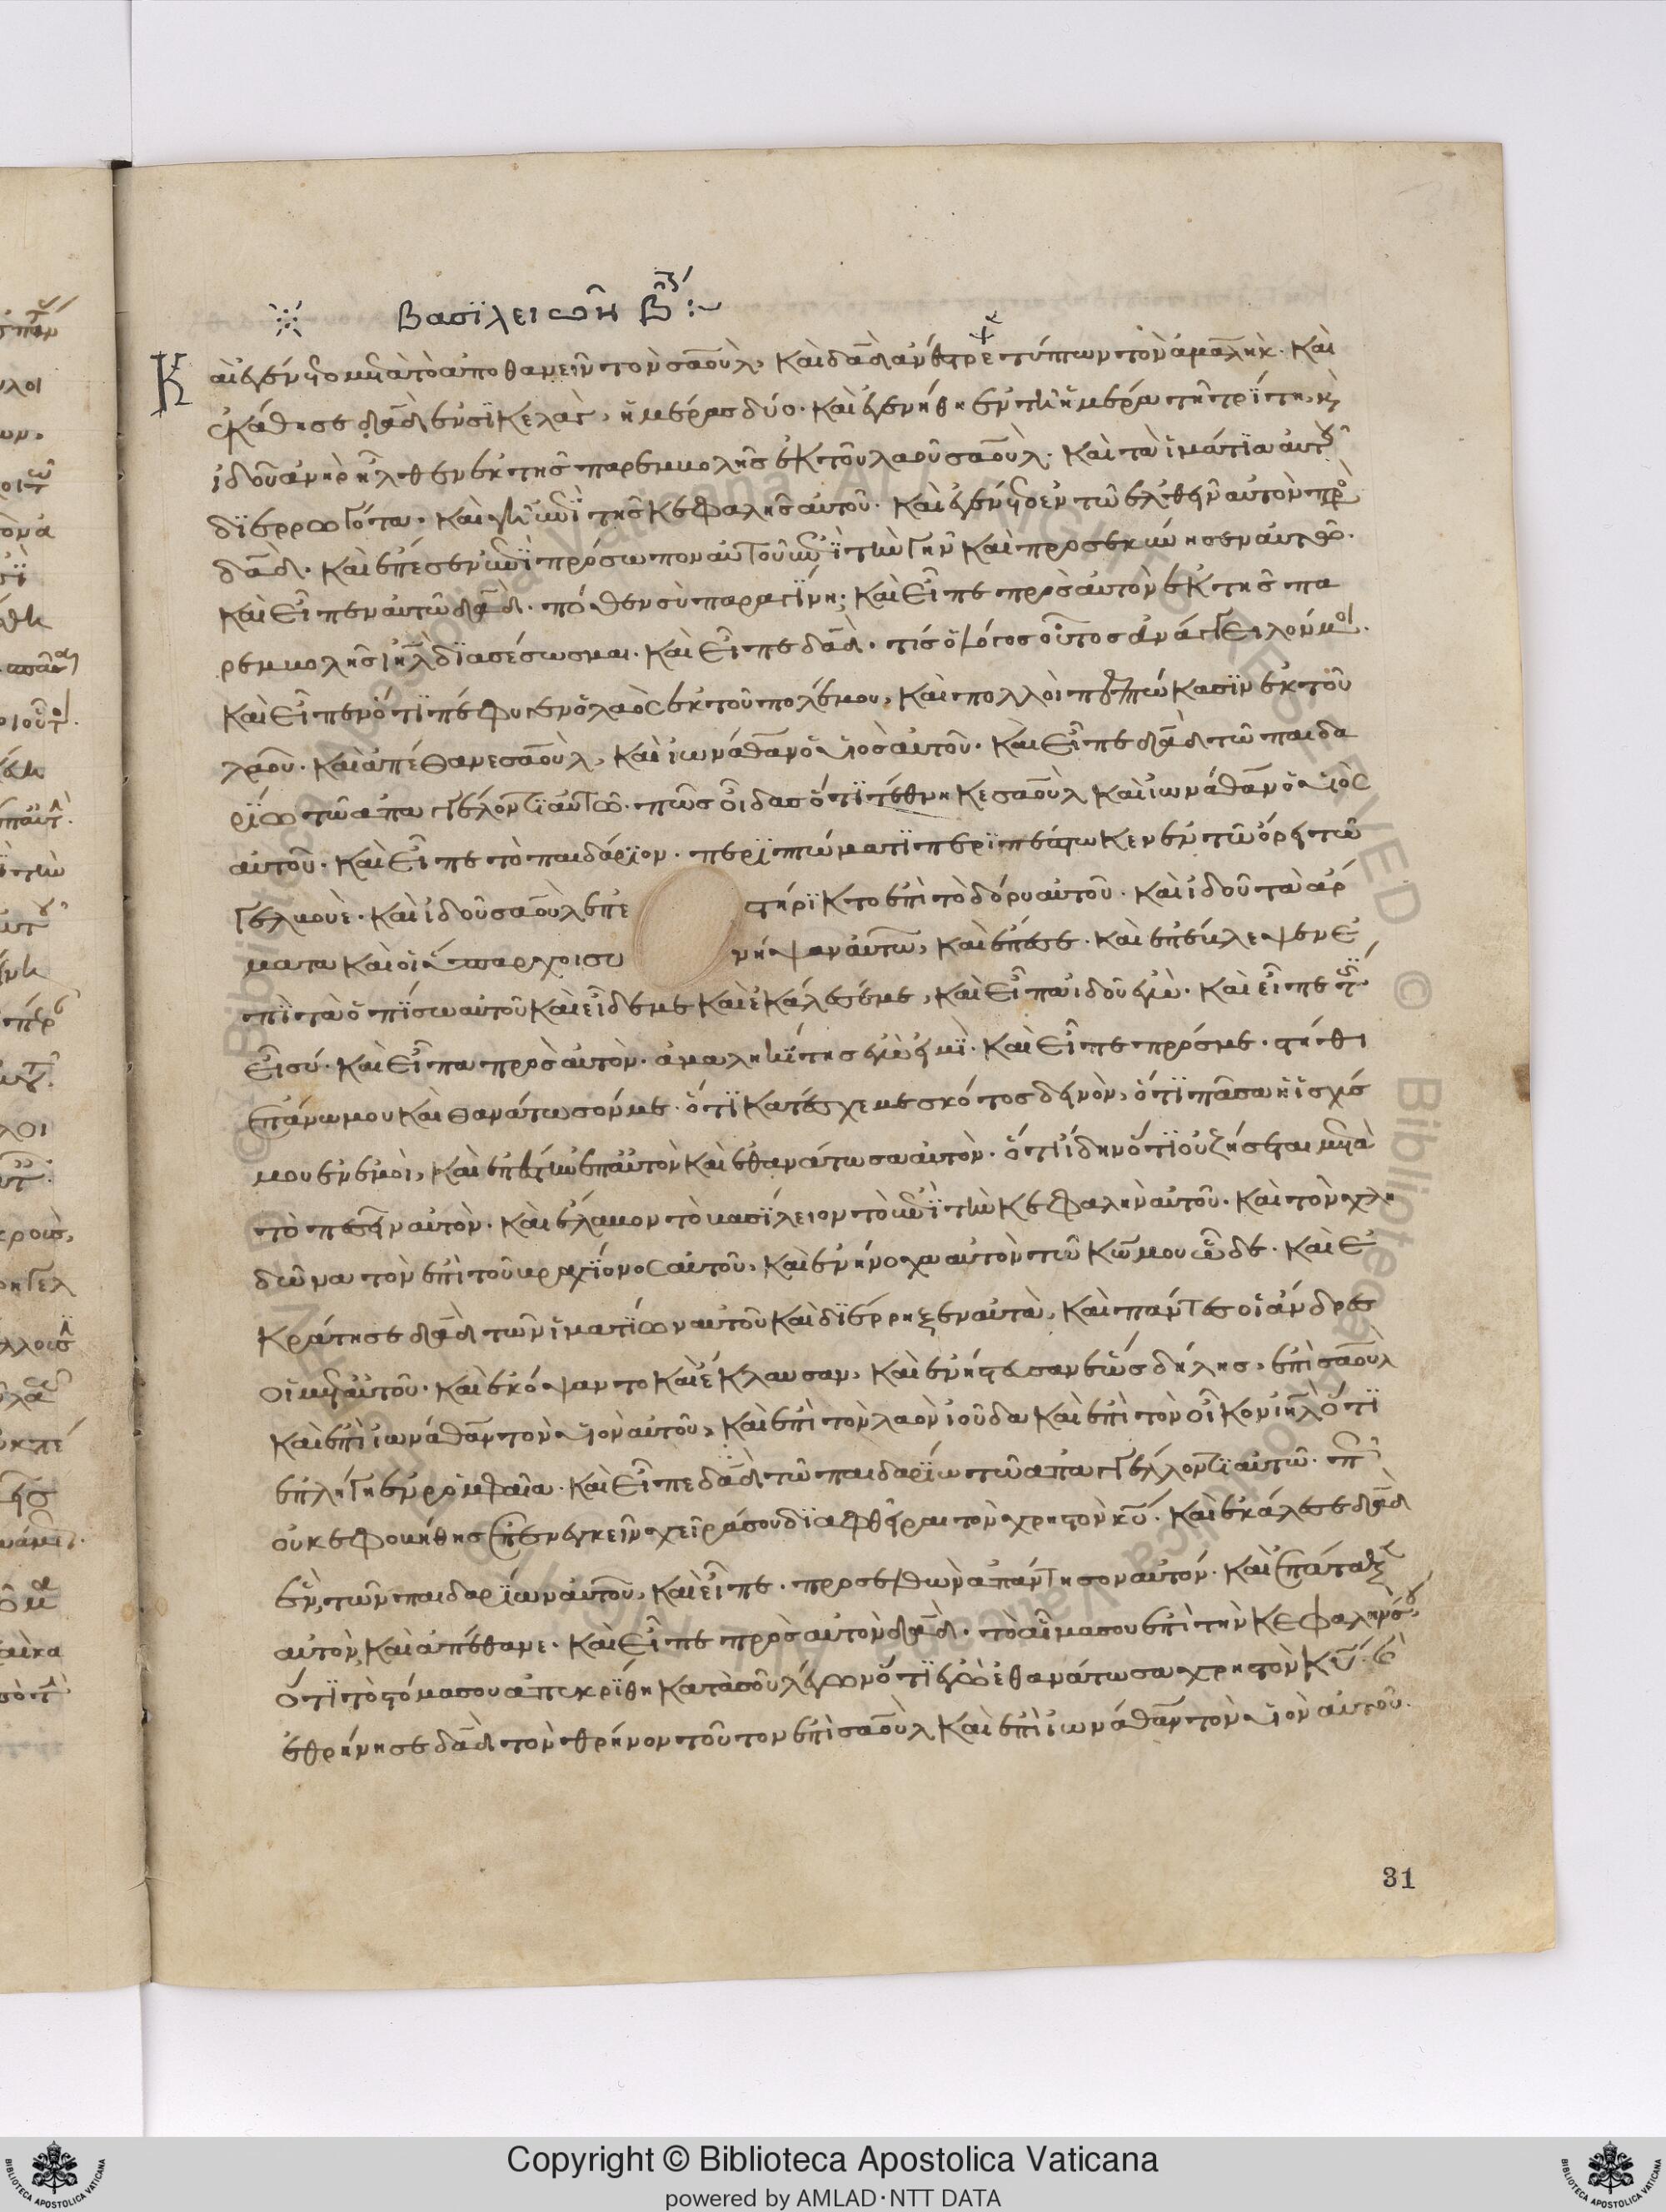 Βασϊλειῶν Β̅ :~
Καὶ ἐγένετο μετὰ τὸ ἀποθανεῖν τὸν σαοὺλ, καὶ δα̅δ ἀνέστρεψε τύπτων τὸν ἀμαλήκ. καὶ
ἐκάθησε δα̅δ ἐν σϊκελὰγ, ἡμέρας δύο. καὶ ἐγενήθη ἐν τῆ ἡμέρα τῆ τρίτη, κ
ἰδοῦ ἀνὴρ ἦλθεν ἐκ τῆς παρεμβολῆς ἐκ τοῦ λαοῦ σαοὺλ. καὶ τὰ ἱμάτϊα αὐτοῦ
δϊερρωγότα. καὶ γῆ ἐπὶ τῆς κεφαλῆς αὐτοῦ. καὶ ἐγένετο ἐν τῶ ἐλθεῖν αὐτὸν πρὸς
δα̅δ. καὶ ἔπεσεν ἐπὶ πρόσωπον αὐτοῦ ἐπὶ τὴν γῆν καὶ προσεκύνησεν αὐτῶ.
καὶ εἶπεν αὐτῶ δα̅δ. πόθεν σὺ παραγίνη; καὶ εἶπε πρὸς αὐτὸν ἐκ τῆς πα
ρεμβολῆς ιη̅λ δϊασέσωσμαι. καὶ εἶπε δα̅δ. τίς ὁ λόγος οὗτος ἀνάγγειλόν μοι.
καὶ εἶπεν ὅτϊ πέφυγεν ὁ λαὸς ἐκ τοῦ πολέμου, καὶ πολλοὶ πεπτώκασϊν ἐκ τοῦ
λαοῦ. καὶ ἀπέθανε σαοὺλ, καὶ ἰωνάθαν ὁ υἱὸς αὐτοῦ. καὶ εἶπε δα̅δ τῶ παιδα
ρϊω τῶ ἀπαγγέλοντϊ αὐτῶ. πῶς οἶδας ὅτϊ τέθνηκε σαοὺλ καὶ ἰωνάθαν ὁ υἱὸς
αὐτοῦ. καὶ εἶπε τὸ παιδάρϊον. περϊπτώματϊ περϊπέπτωκεν ἐν τῶ ὄρει τῶ
γελβουὲ. καὶ ἰδοῦ σαοὺλ ἐπε στήρϊκτο ἐπὶ τὸ δόρυ αὐτοῦ. καὶ ἰδοῦ τὰ ἅρ
ματα καὶ οἱ ἵππαρχοι συ νήψαν αὐτῶ, καὶ ἔπεσε. καὶ ἐπέβλεψεν ἐ
πὶ τὰ ὀπϊσω αὐτοῦ καὶ εἶδε με καὶ ἐκάλεσέ με, καὶ εἶπα ἰδοῦ ἐγὼ. καὶ εἶπε τίς
εἶ σύ. καὶ εἶπα πρὸς αὐτὸν. ἀμαληκίτης ἐγὼ εἰμὶ. καὶ εἶπε πρός με. στῆθι
ἐπάνω μου καὶ θανάτωσόν με. ὅτϊ κατέσχε με σκότος δεινὸν, ὅτϊ πᾶσα ἡ ἰσχύς
μου ἐν ἐμοὶ, καὶ ἐπέστην ἐπ αὐτὸν καὶ ἐθανάτωσα αὐτὸν. ὅτϊ ἴδην ὅτϊ οὐ ζήσεται μετὰ
τὸ πεσεῖν αὐτὸν. καὶ ἔλαβον τὸ βασϊλειον τὸ ἐπὶ τὴν κεφαλὴν αὐτοῦ. καὶ τὸν χλη
δῶνα τὸν ἐπὶ τοῦ βραχϊονος αὐτοῦ, καὶ ἐνήνοχα αὐτὸν τῶ κω̅ μου ὧδε. καὶ ἐ
κράτησε δα̅δ τῶν ἱματϊων αὐτοῦ καὶ δϊέρρηξεν αὐτὰ, καὶ πάντες οἱ ἄνδρες
οἱ μετ αὐτοῦ. καὶ ἐκόψαντο καὶ ἔκλαυσαν, καὶ ἐνήστευσαν ἕως δείλης, ἐπὶ σαοὺλ
καὶ ἐπὶ ἰωνάθαν τὸν υἱὸν αὐτοῦ, καὶ ἐπὶ τὸν λαὸν ἰούδα καὶ ἐπὶ τὸν οἶκον ιη̅λ ὅτϊ
ἐπλήγη ἐν ρομφαία. καὶ εἶπε δα̅δ τῶ παιδαρϊω τῶ ἀπαγγέλλοντϊ αὐτῶ. πῶς
οὐκ ἐφοβήθης ἐπενεγκεῖν χεῖρά σου δϊαφθεῖραι τὸν χρηστὸν κυ̅. καὶ ἐκάλεσε δα̅δ
ἓν τῶν παιδαρϊων αὐτοῦ, καὶ εἶπε. προσελθὼν ἀπάντησον αὐτόν. καὶ ἐπάταξε
αὐτὸν καὶ ἀπέθανε. καὶ εἶπε πρὸς αὐτὸν δα̅δ. τὸ αἷμα σου ἐπὶ τὴν κεφαλήν σου,
ὅτϊ τὸ στόμα σου ἀπεκρίθη κατὰ σοῦ λέγων ὅτϊ ἐγὼ ἐθανάτωσα χρηστὸν κυ̅. καὶ
ἐθρήνησε δα̅δ τὸν θρῆνον τοῦτον ἐπὶ σαοὺλ καὶ ἐπὶ ἰωνάθαν τὸν υἱὸν αὐτοῦ.
31
Copyright © Biblioteca Apostolica Vaticana
powered by AMLAD·NTT DATA